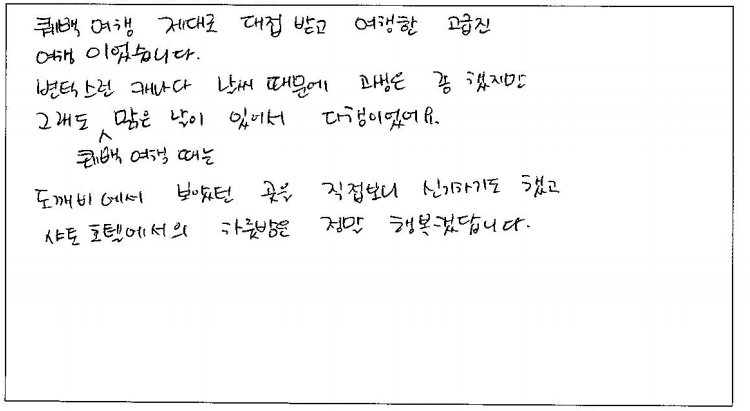 퀘백 여행 제대로 대접 받고 여행한 고급진
여행 이었습니다.
변턱스런 캐나다 날씨 때문에 고생은 좀 했지만
그래도 맑은 날이 있어서 다행이었어요.
퀘백 여행 때는
도깨비에서 보았던 곳을 직접보니 신기하기도 했고
샤토 호텔에서의 하룻밤은 정말 행복했답니다.